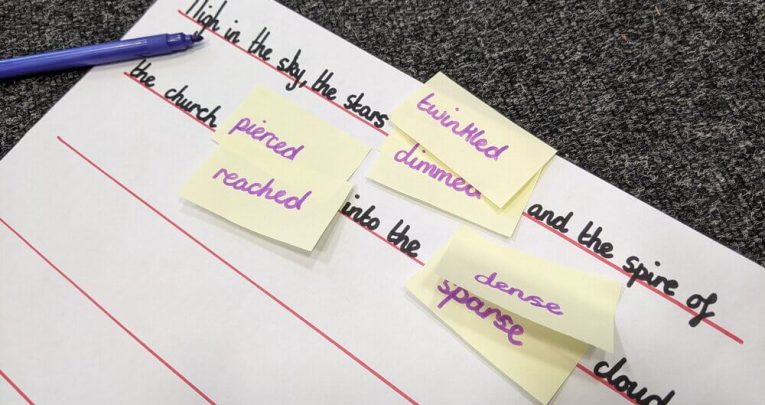 High in the sky, the stars twinkled dimmed and the spire of
the church pierced reached into the dense sparse cloud